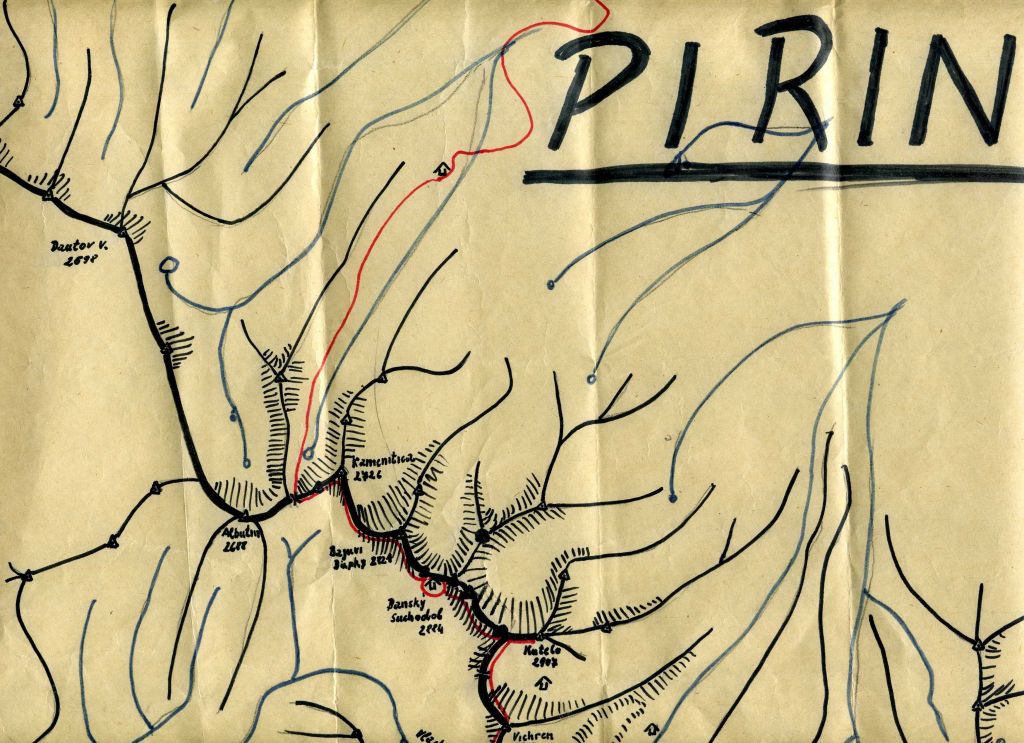 PIRIN
Dautov V.
2598
Kamenitica
2726
Albutin
2688
Bajuvi
Dupky 2821
Bansky
Suchodol
2884
Kutelo
2907
Vichren